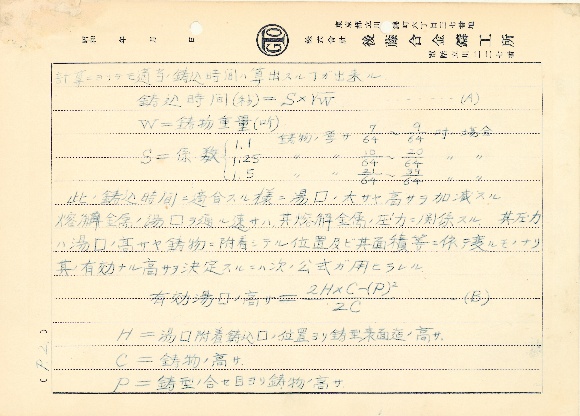 株式会社 後藤合金鑄工所
昭和 年 月 日
計算ニヨッテモ適当ナ鋳込時間ハ算出スルヿガ出来ル
鋳込時間(秒)＝S×√W ‥‥‥(A)
W＝鋳物重量(听)
S＝係数 { 1.1 鋳物ノ厚サ 7/64 ～ 9/64 吋ノ場合
1.25 〃 〃 10/64 ～ 〃 〃
1.5 〃 〃 21/64 ～ 〃 〃
此ノ鋳込時間ニ適合スル様ニ湯口ノ大サヤ高サヲ加減スル
熔解金属ノ湯口ヲ通ル速サハ其熔解金属ノ圧力ニ関係スル 其圧力
ハ湯口ノ高サヤ鋳物ニ附着シテル位置及ビ其面積等ニ依テ変ルモノナリ
其ノ有効ナル高サヲ決定スルニハ次ノ公式ガ用ヒラレル
有効湯口ノ高サ＝ 2H×C-(P)² / 2C (B)
H＝湯口附着鋳込口ノ位置ヨリ鋳型表面迄ノ高サ
C＝鋳物ノ高サ
P＝鋳型ノ合セ目ヨリ鋳物ノ高サ
(P.2.)